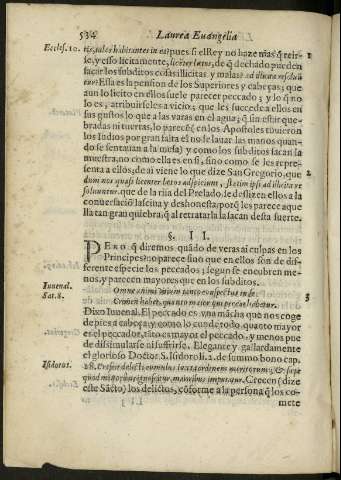 534 Laurea Euangelica
Eccles. 10. tes, tales habitantes in ea: pues si el Rey no haze mas q̃ reir- 1
se, y esso licitamente, liciter lætus, de q̃ dechado pueden
sacar los subditos cosas illicitas y malas? ad illicita resolui-
tur? Esta es la pension de los Superiores y cabeças; que
aun lo licito en ellos suele parecer peccado; y lo q̃ no
lo es, atribuirseles a vicio; que les succede a ellos en
sus gustos lo que a las varas en el agua; q̃ sin estar que-
bradas ni tuertas, lo parecẽ; en los Apostoles tuuieron
los Iudios por gran falta el no se lauar las manos quan-
do se sentauan a la mesa; y como los subditos sacan la
muestra, no como ella es en si, sino como se les repre-
senta a ellos; de ai viene lo que dize San Gregorio, que 2
dum nos quasi licenter lætos adspiciunt, statim ipsi ad illicita re
soluuntur. que de la risa del Prelado, se deslizen ellos a la
conuersaciõ lasciua y deshonesta; porq̃ les parece aque
lla tan gran quiebra, q̃ al retratarla la sacan desta suerte.
§. II.
PERO q̃ diremos quãdo de veras ai culpas en los
Principes? no parece sino que en ellos son de dif-
ferente especie los peccados; segun se encubren me-
nos, y parecen mayores que en los subditos.
Iuuenal. Omne animi vitium tanto conspectius in se
Sat. 8. Crimen habet, quanto maior qui peccat habetur. 3
Dixo Iuuenal. El peccado es vna mãcha que nos coge
de pies a cabeça; y como lo cunde todo, quanto mayor
es el peccador, tãto es mayor el peccado, y menos pue
de dissimularse ni suffrirse. Elegante y gallardamente
el glorioso Doctor S. Isidoro li. 2. de summo bono cap.
Isidorus. 18. Crescit delicti cumulus iuxta ordinem meritorum; & sæpe
quod minoribus ignoscitur, maioribus imputatur. Crecen (dize
este Sãcto) los delictos, cõforme a la persona q̃ los co-
mete